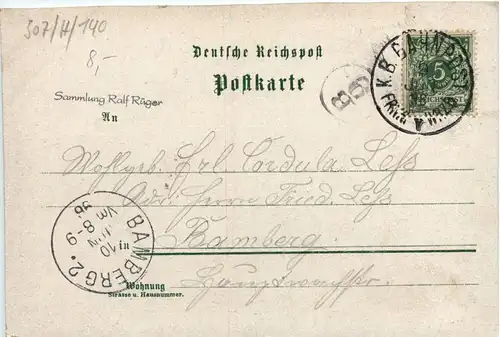 307/H/140
8,-
Deutsche Reichspost
Postkarte
Sammlung Ralf Rüger
An
K.B. BAHNPOST
5
REICHSPOST
Wohlgeb. Frl. Cordula Less
Adr. Herrn Fried. Less
in Bamberg.
Hauptwache
BAMBERG 2.
10
JUN
Vm 8-9
96
Wohnung
Strasse u. Hausnummer.